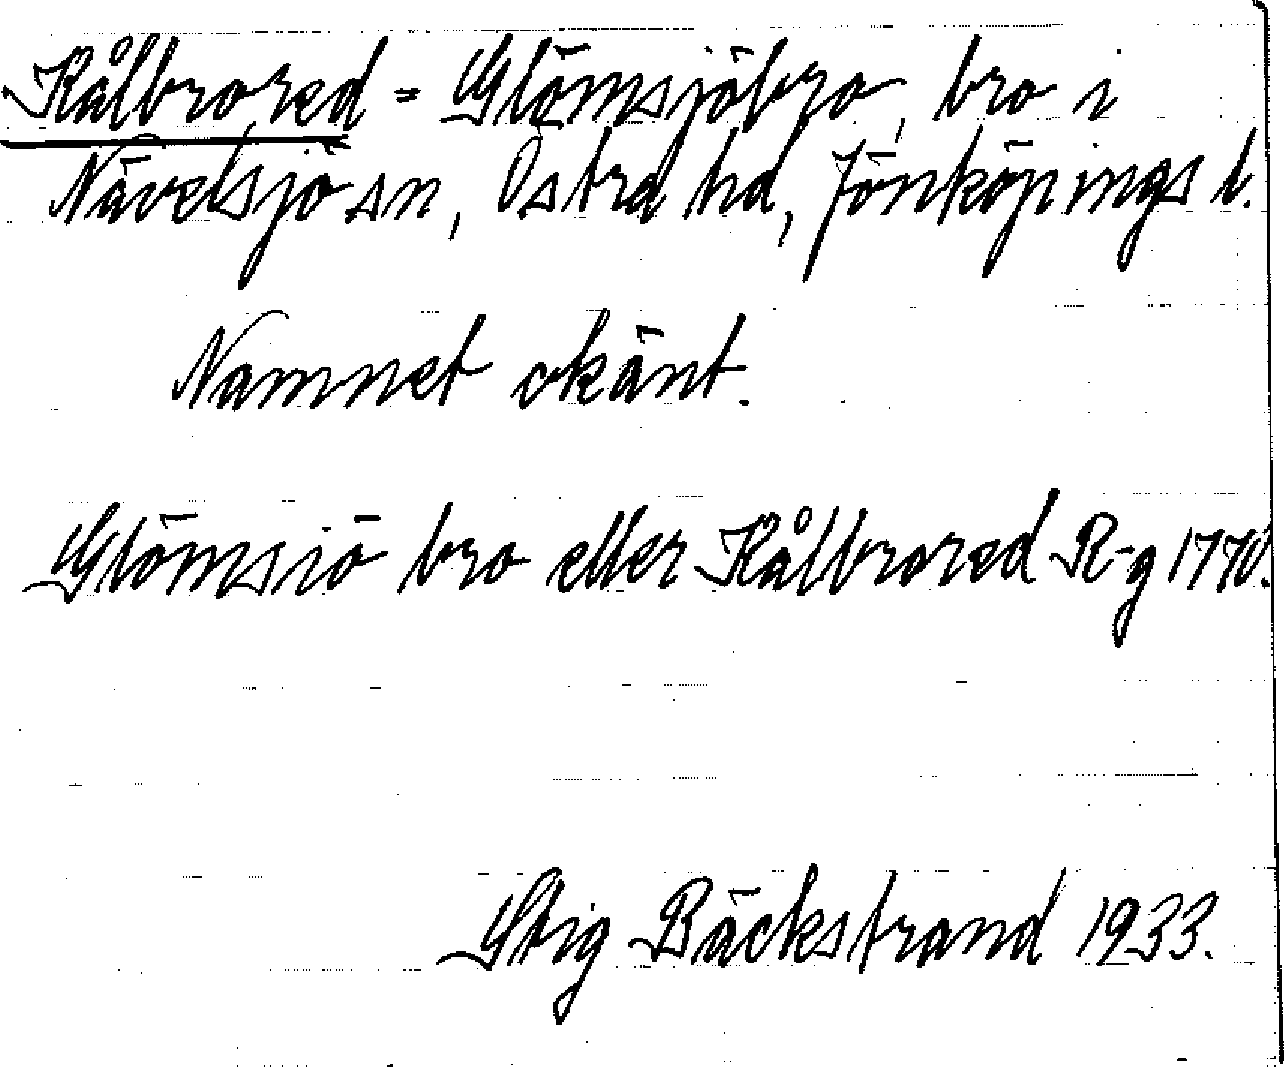 Kålbrored = Glömsjöbro, bro i
Nävelsjö sn, Östra hd, Jönköpings l.
Namnet okänt.
Glömsiö bro eller Kålbrored R-g 1770.
Stig Bäckstrand 1933.